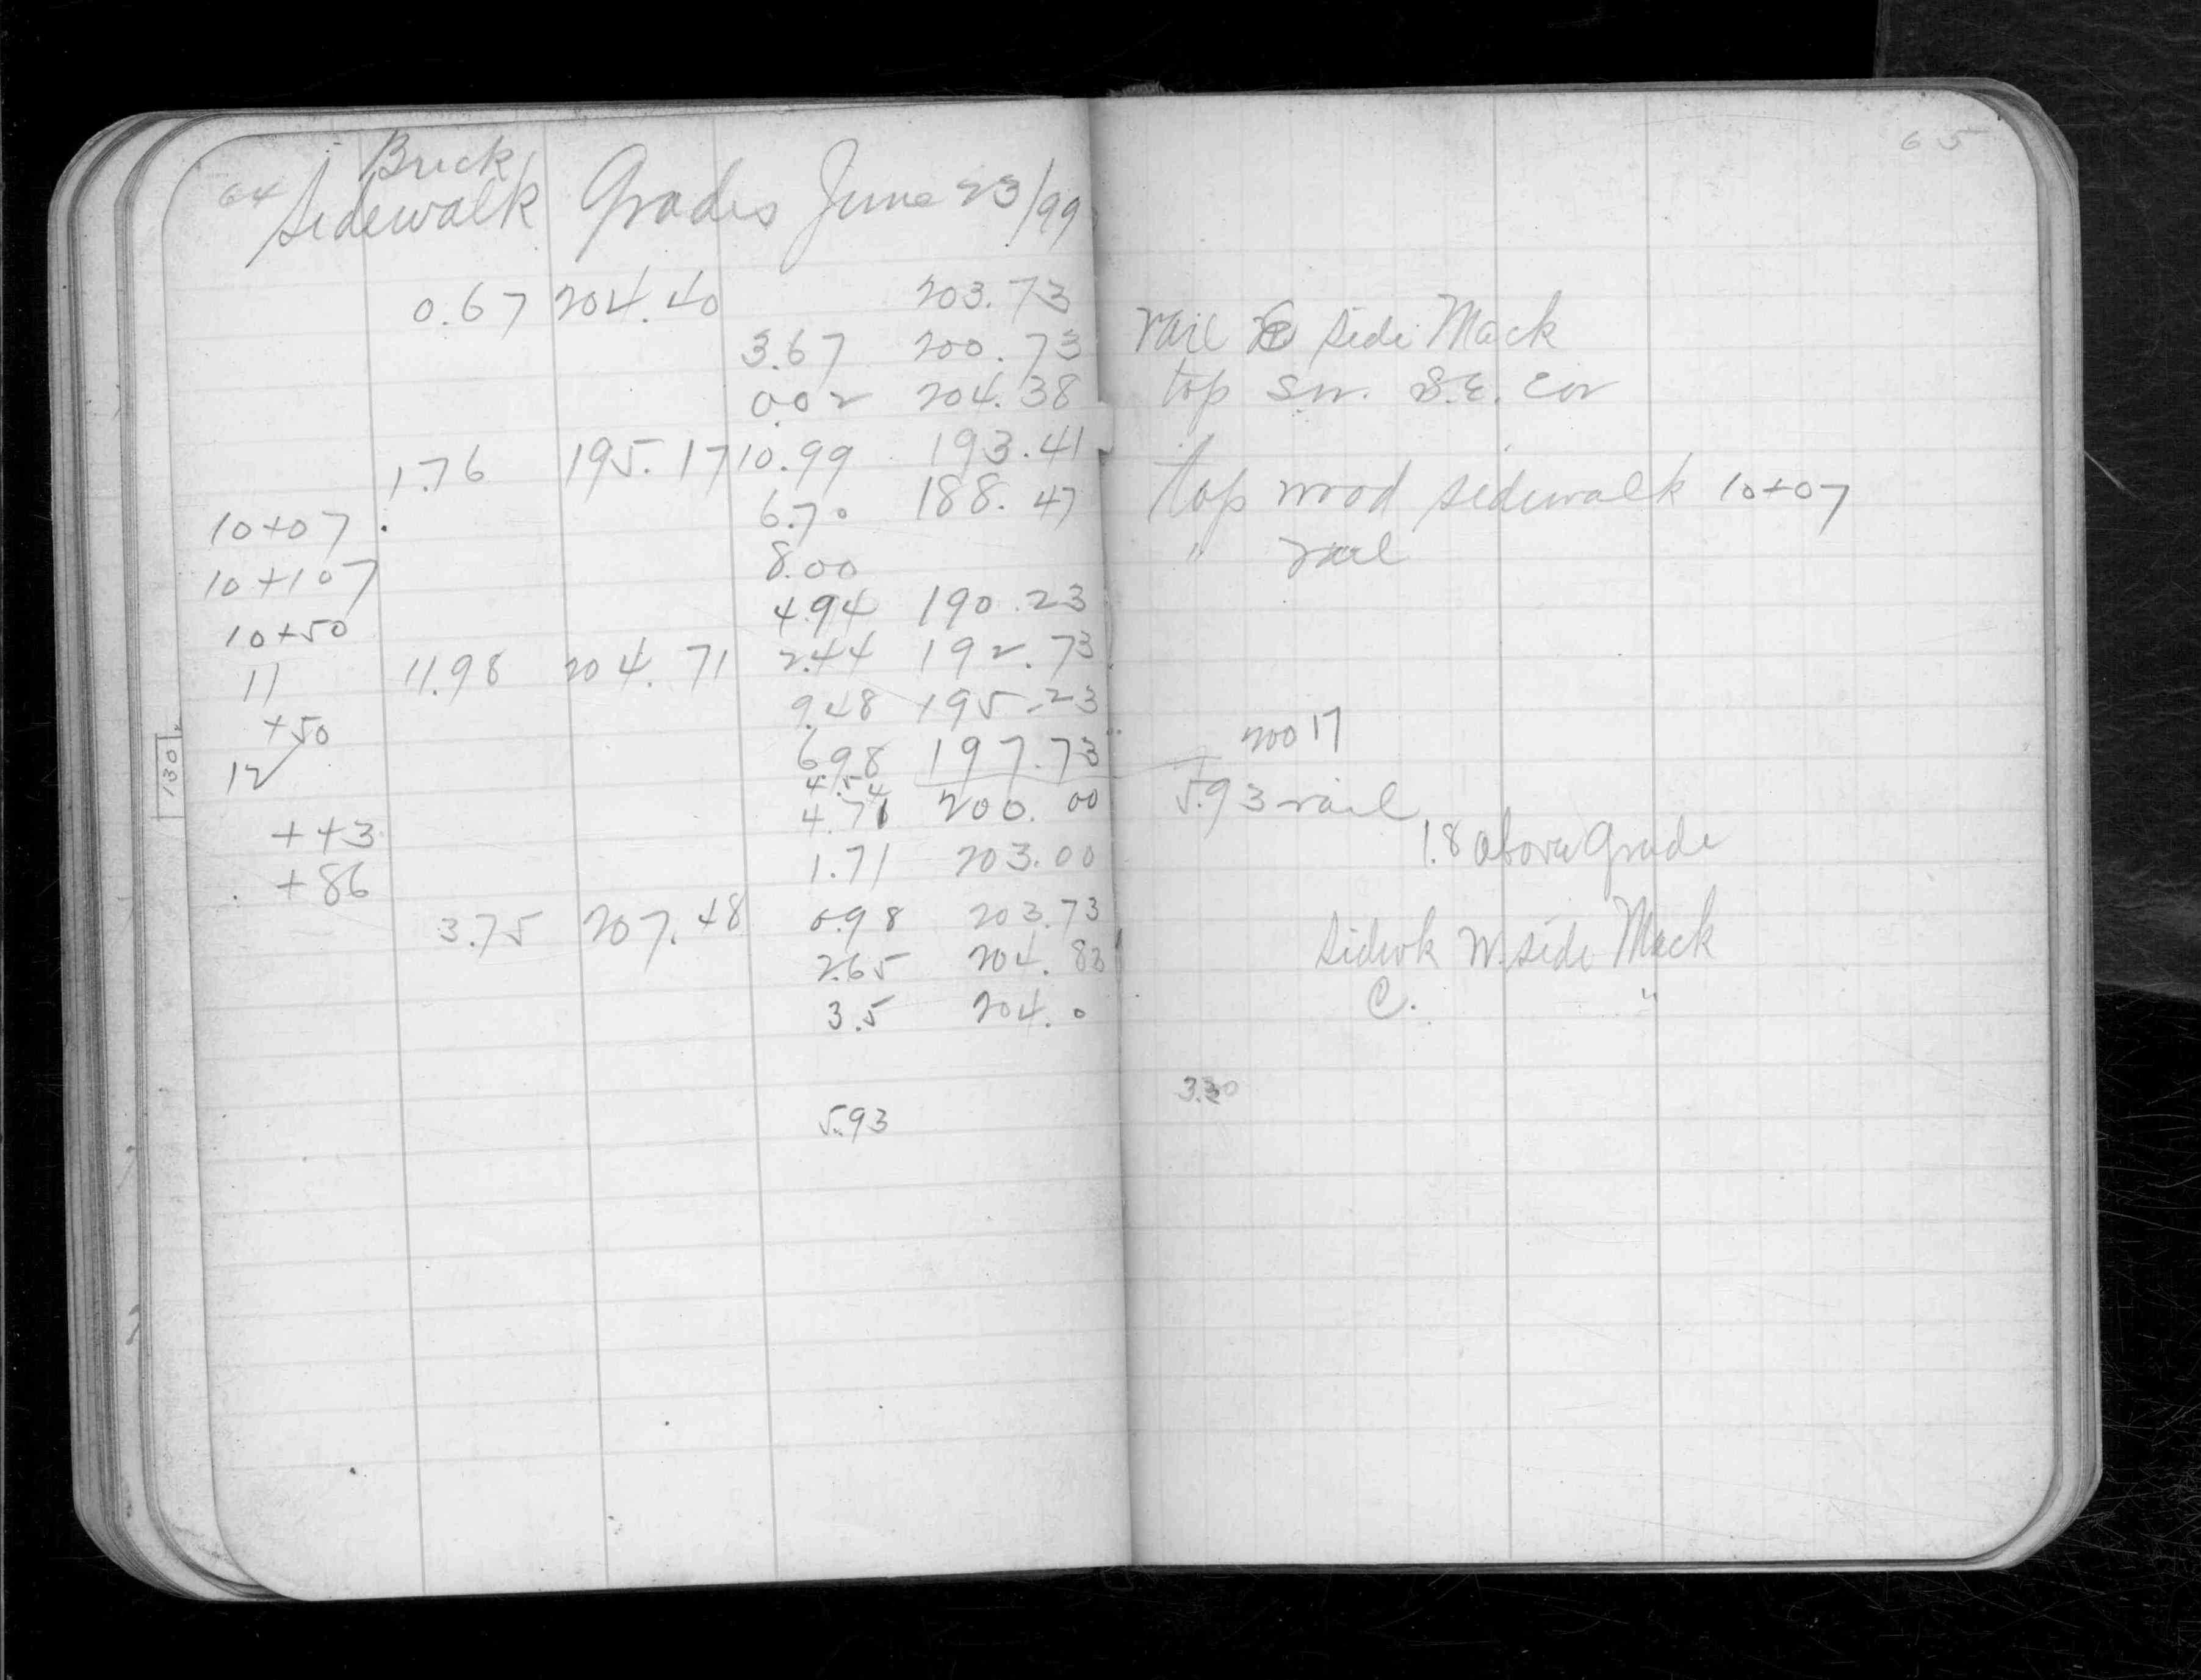 64
Brick
Sidewalk Grades June 23/99
0.67 204.40 203.73
3.67 200.73
0.02 204.38
1.76 195.17 10.99 193.41
10+07 6.70 188.47
10+107 8.00
10+50 4.94 190.23
11 11.98 204.71 2.44 192.73
+50 9.48 195.23
12 6.98 197.73
4.54
+43 4.71 200.00
+86 1.71 203.00
3.75 207.48 0.98 203.73
2.65 204.83
3.5 204.0
5.93
130
65
rail side Mack
top sw. S.E. cor
top wood sidewalk 10+07
" rail
200 17
5.93 rail
1.8 above grade
sidwk W. side Mack
C. "
3.30